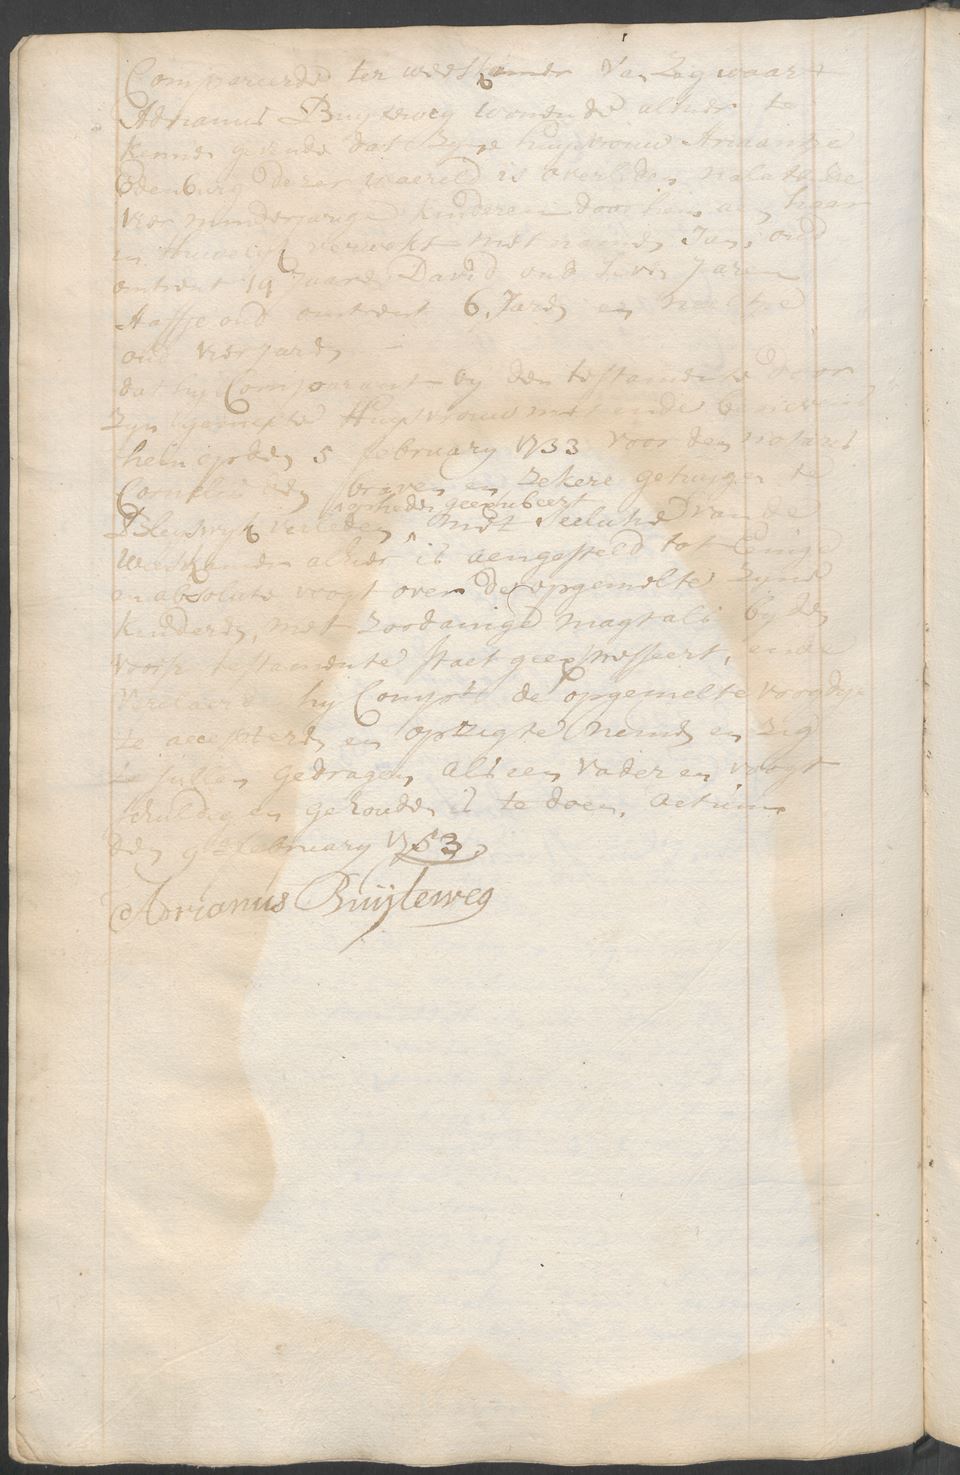 Compareerde ter weeskamer van Zegwaart
Adrianus Buijteweg wonende alhier te
kennen gevende dat zyne huysvrouw Ariaantje
Odenburg dezer waereld is overleden nalatende
vier minderjarige kinderen door hem aan haar
in Huwelyk verwekt met namen Jan, oud
omtrent 19 Jaaren David oud Jaren
oud omtrent 6, Jaren en Neeltje
oud vier jaren
dat hy Comparant by den testamente door
Zyn gemelte Huysvrouw met ende beneevens
hem op den 5 february 1733 voor den notaris
Cornelis en zekere getuygen te
Bleyswyk verleden, op heden geexhibeert met seclusie van de
Weeskamer alhier is aengesteld tot Eenige
en absolute voogt over de opgemelte zyne
kinderen, met zoodanige magt als by den
voorsz testamente staet geexpresseert, ende
Verclaerd hy Compt de opgemelte voogdye
te accepteren en op zig te nemen en zig
te sullen gedragen als een vader en voogt
schuldig en gehouden is te doen. Actum
den 9 february 1753.
Adrianus Buijteweg